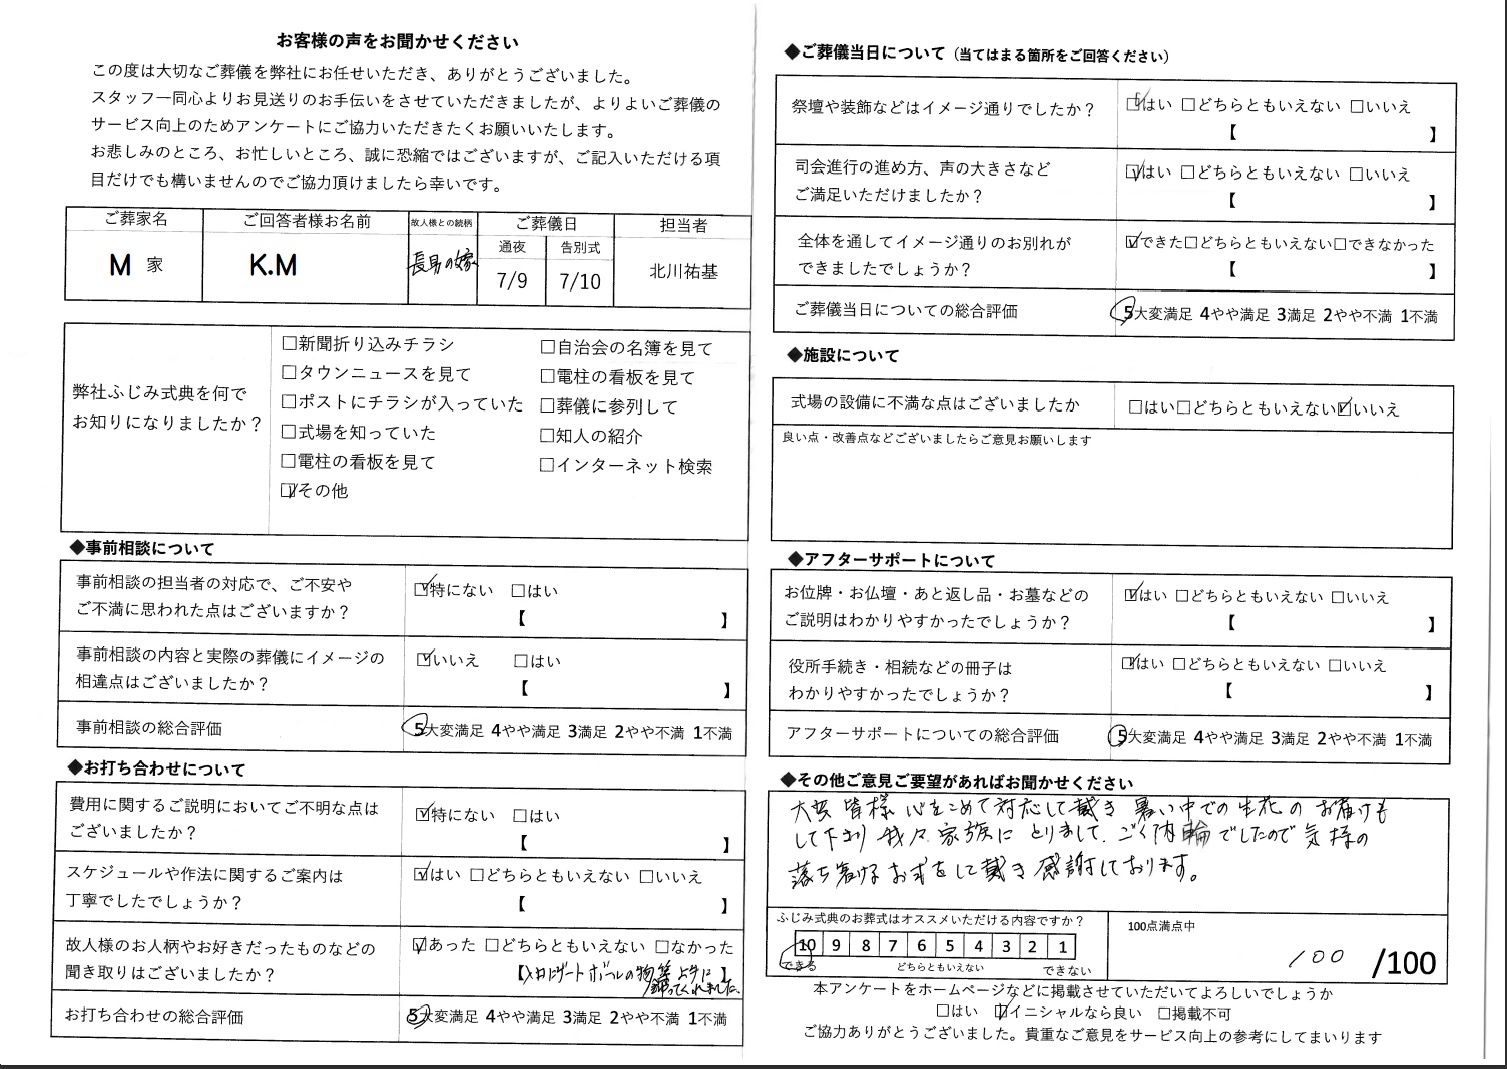 お客様の声をお聞かせください
この度は大切なご葬儀を弊社にお任せいただき、ありがとうございました。
スタッフ一同心よりお見送りのお手伝いをさせていただきましたが、よりよいご葬儀の
サービス向上のためアンケートにご協力いただきたくお願いいたします。
お悲しみのところ、お忙しいところ、誠に恐縮ではございますが、ご記入いただける項
目だけでも構いませんのでご協力頂けましたら幸いです。
ご葬家名 ご回答者様お名前 故人様との続柄 ご葬儀日 担当者
通夜 告別式
M 家 K.M 長男の嫁 7/9 7/10 北川祐基
弊社ふじみ式典を何で
お知りになりましたか?
□新聞折り込みチラシ □自治会の名簿を見て
□タウンニュースを見て □電柱の看板を見て
□ポストにチラシが入っていた □葬儀に参列して
□式場を知っていた □知人の紹介
□電柱の看板を見て □インターネット検索
☑その他
◆事前相談について
事前相談の担当者の対応で、ご不安や
ご不満に思われた点はございますか?
☑特にない □はい
【 】
事前相談の内容と実際の葬儀にイメージの
相違点はございましたか?
☑いいえ □はい
【 】
事前相談の総合評価 5大変満足 4やや満足 3満足 2やや不満 1不満
◆お打ち合わせについて
費用に関するご説明においてご不明な点は
ございましたか?
☑特にない □はい
【 】
スケジュールや作法に関するご案内は
丁寧でしたでしょうか?
☑はい □どちらともいえない □いいえ
【 】
故人様のお人柄やお好きだったものなどの
聞き取りはございましたか?
☑あった □どちらともいえない □なかった
【入口にゲートボールの物等上手に
飾ってくれました。】
お打ち合わせの総合評価 5大変満足 4やや満足 3満足 2やや不満 1不満
◆ご葬儀当日について(当てはまる箇所をご回答ください)
祭壇や装飾などはイメージ通りでしたか?
☑はい □どちらともいえない □いいえ
【 】
司会進行の進め方、声の大きさなど
ご満足いただけましたか?
☑はい □どちらともいえない □いいえ
【 】
全体を通してイメージ通りのお別れが
できましたでしょうか?
☑できた□どちらともいえない□できなかった
【 】
ご葬儀当日についての総合評価 5大変満足 4やや満足 3満足 2やや不満 1不満
◆施設について
式場の設備に不満な点はございましたか □はい□どちらともいえない☑いいえ
良い点・改善点などございましたらご意見お願いします
◆アフターサポートについて
お位牌・お仏壇・あと返し品・お墓などの
ご説明はわかりやすかったでしょうか?
☑はい □どちらともいえない □いいえ
【 】
役所手続き・相続などの冊子は
わかりやすかったでしょうか?
☑はい □どちらともいえない □いいえ
【 】
アフターサポートについての総合評価 5大変満足 4やや満足 3満足 2やや不満 1不満
◆その他ご意見ご要望があればお聞かせください
大変 皆様 心をこめて対応して戴き 暑い中での生花のお届けも
して下さり 我々家族にとりまして、ごく内輪でしたので気持の
落ち着ける お式をして戴き 感謝しております。
ふじみ式典のお葬式はオススメいただける内容ですか?
10 9 8 7 6 5 4 3 2 1
できる どちらともいえない できない
100点満点中
100 /100
本アンケートをホームページなどに掲載させていただいてよろしいでしょうか
□はい ☑イニシャルなら良い □掲載不可
ご協力ありがとうございました。貴重なご意見をサービス向上の参考にしてまいります